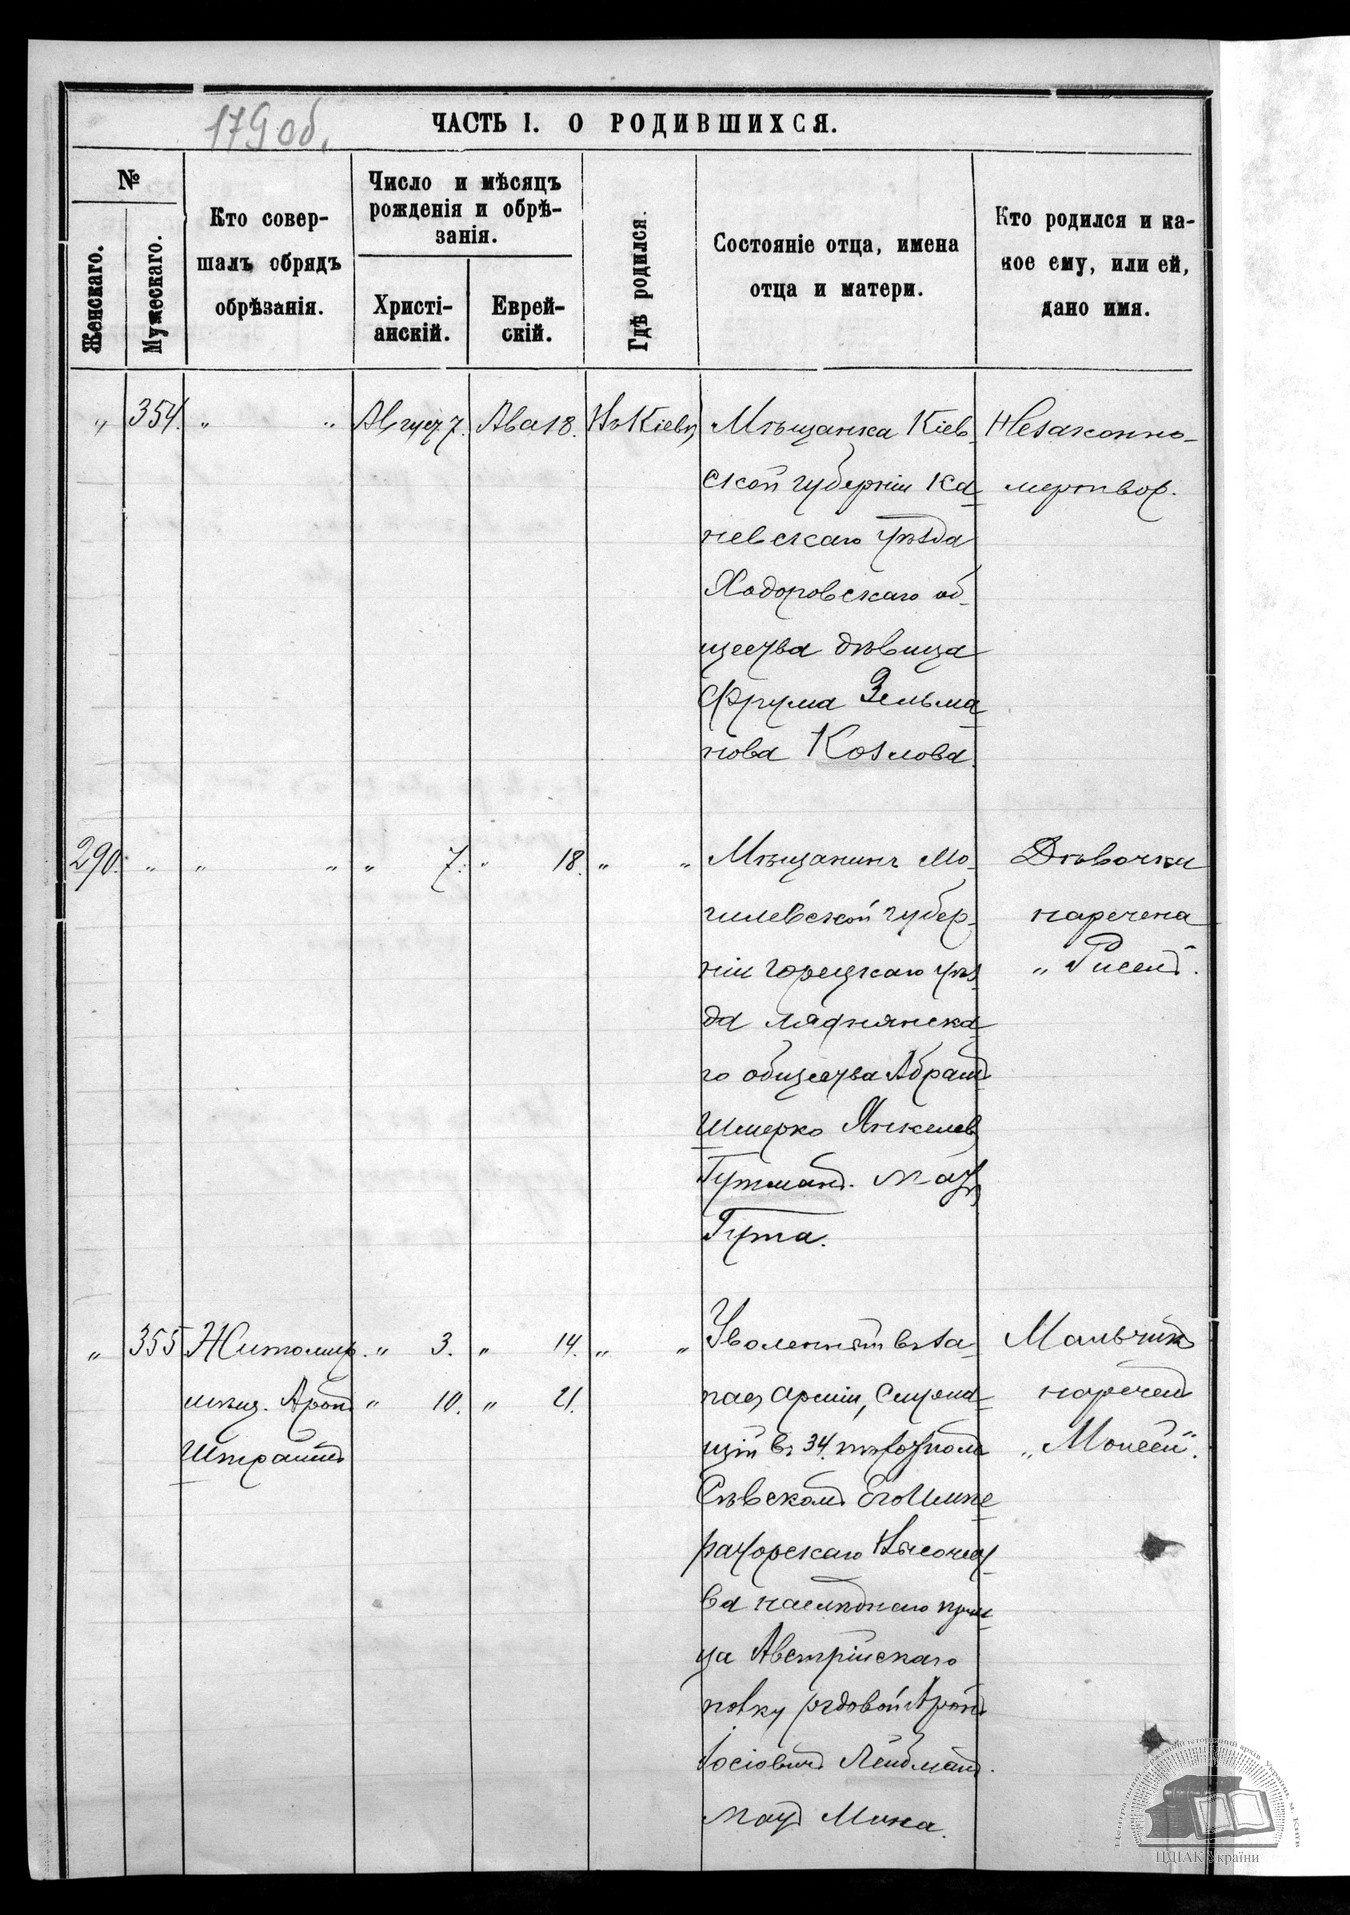 179 об.
ЧАСТЬ I. О РОДИВШИХСЯ.
№
Женскаго.
Мужескаго.
Кто совер-
шалъ обрядъ
обрѣзанія.
Число и мѣсяцъ
рожденія и обрѣ-
занія.
Христі-
анскій.
Еврей-
скій.
Гдѣ родился.
Состояніе отца, имена
отца и матери.
Кто родился и ка-
кое ему, или ей,
дано имя.
„ 354. „ „ Август 7. Ава 18. Въ Кіевѣ
Мѣщанка Кіев-
ской губерніи Ка-
невскаго уѣзда
Ходоровскаго об-
щества дѣвица
Фрума Зельма-
нова Козлова.
Незаконно-
мертвор.
290. „ „ „ „ 7. „ 18. „ „
Мѣщанинъ Мо-
гилевской губер-
ніи Горецкаго уѣз-
да Ляднянска-
го общества Абрамъ
Шмерко Янкелев
Гутманъ. М-ать
Гута.
Дѣвочка
наречена
„ Рисель".
„ 355 Житомир. „ 3. „ 14. „ „
мѣщ. Аронъ „ 10. „ 21.
Штраймъ
Уволенный въ за-
пас арміи, служа-
щій въ 34. пѣхотномъ
Сѣвскомъ Его Импе
раторскаго Высочест
ва наслѣднаго прин
ца Австрійскаго
полку рядовой Аронъ
Іосіовичъ Лейбманъ.
мать Мина.
Мальчикъ
нареченъ
„ Моисей".
Центральний державний історичний архів України, м. Київ
ЦДІАК України